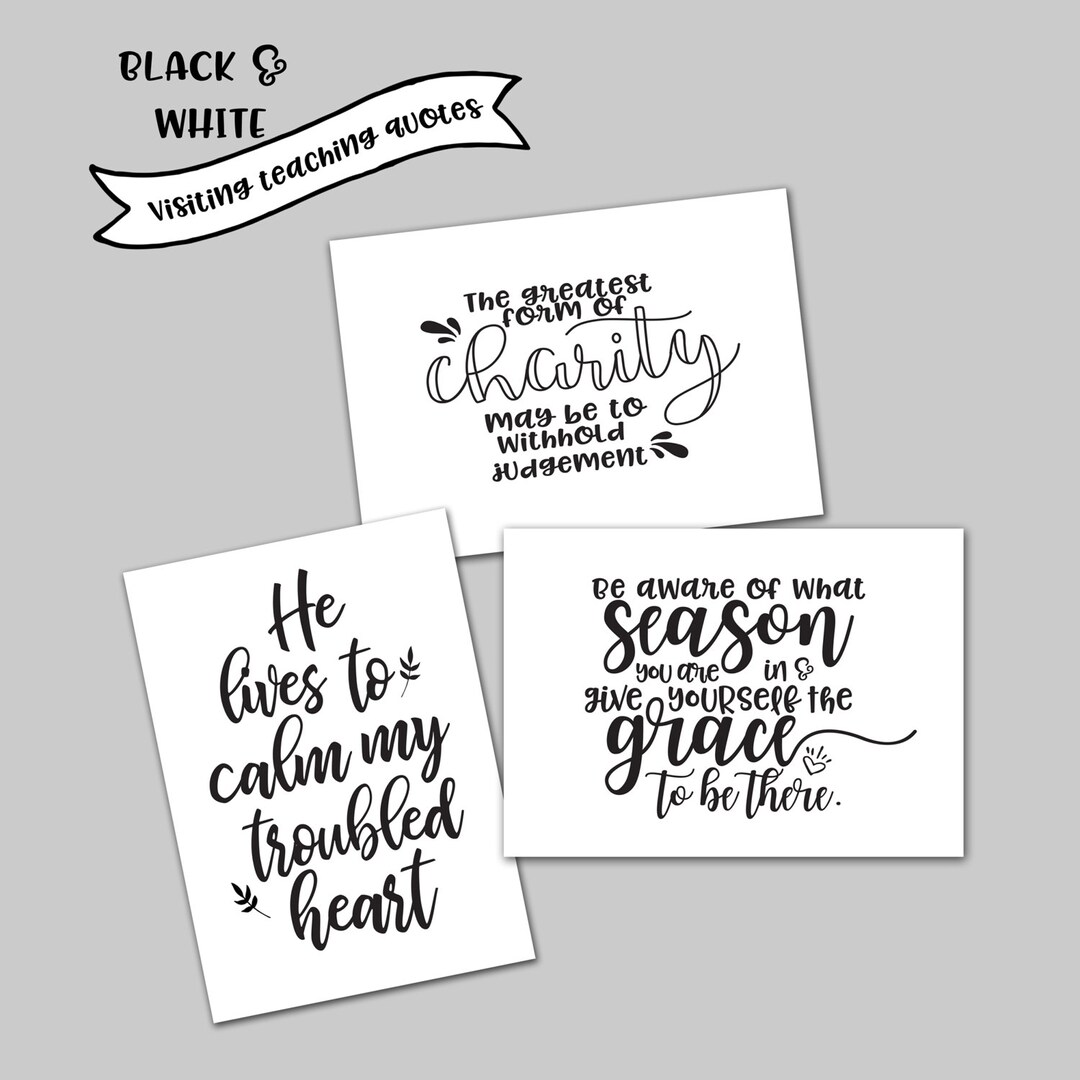 BLACK &
WHITE
Visiting teaching quotes
The greatest
form of
charity
may be to
withhold
judgement
He
lives to
calm my
troubled
heart
Be aware of what
season
you are in &
give yourself the
grace
to be there.